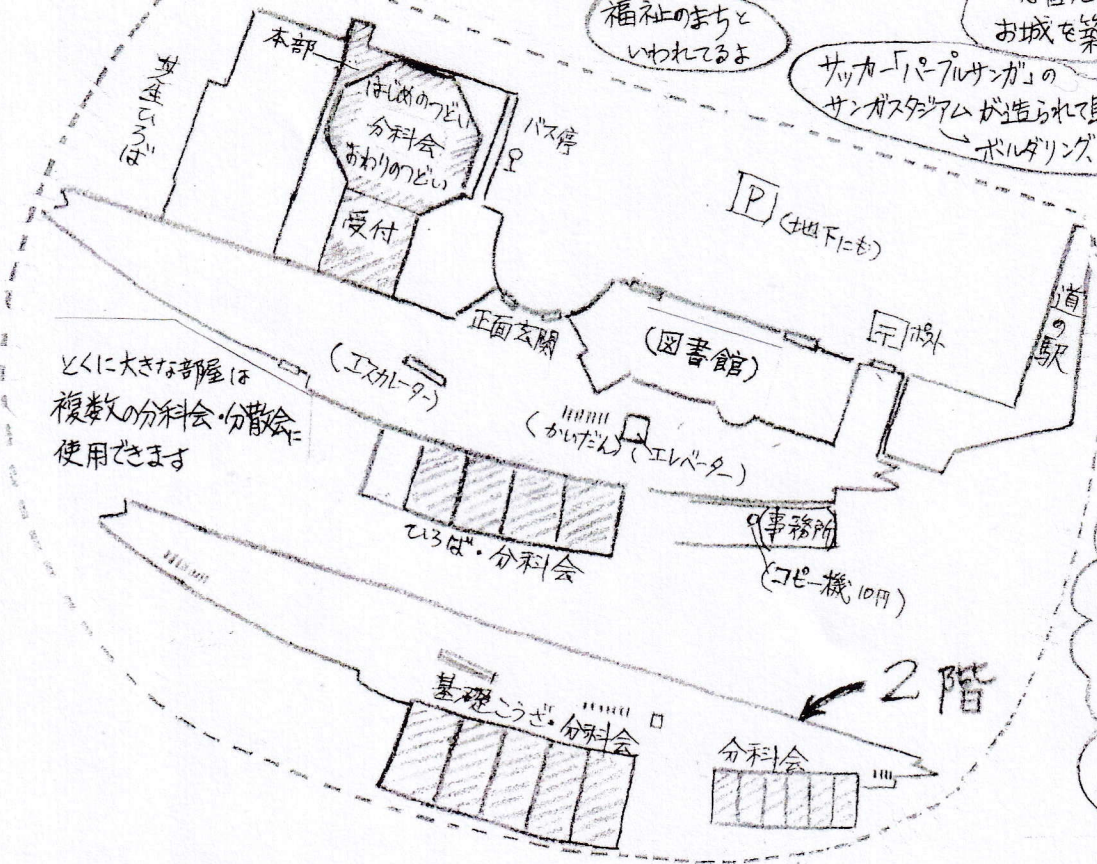 福祉のまちと
いわれてるよ
お城を築
サッカー「パープルサンガ」の
サンガスタジアムが造られて
ボルダリング、
本部
はじめのつどい
分科会
おわりのつどい
受付
バス停
P
(地下にも)
正面玄関
(図書館)
〒 ポスト
道の駅
とくに大きな部屋は
複数の分科会・分散会に
使用できます
(エスカレーター)
(かいだん)
(エレベーター)
ひろば・分科会
(事務所)
(コピー機、10円)
2階
基礎こうざ・分科会
分科会